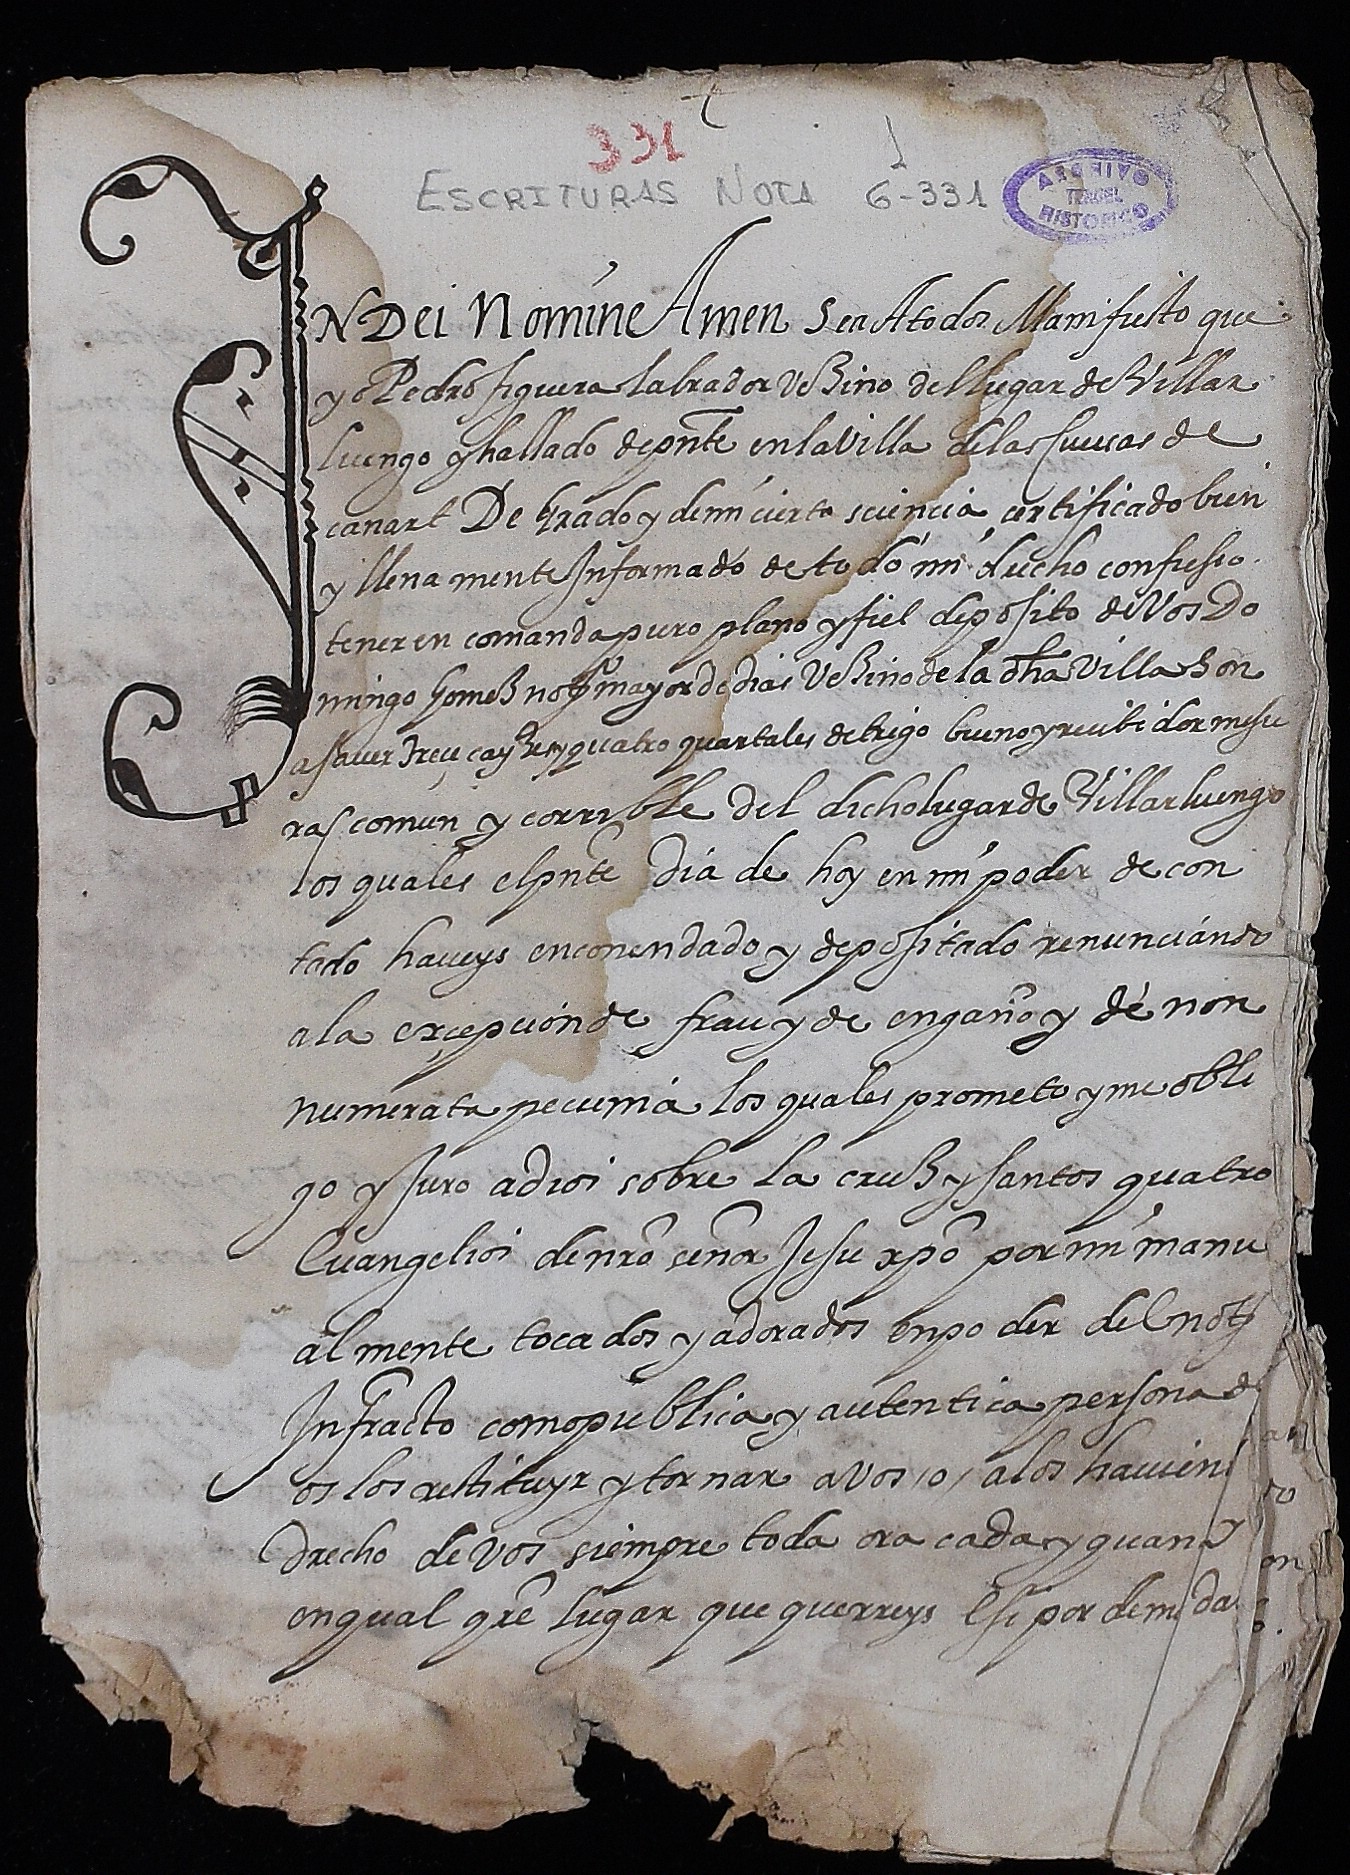 331
ESCRITURAS NOTA 6-331
ARCHIVO
TERUEL
HISTORICO
IN Dei Nomine Amen Sea Atodos Manifiesto que
yo Pedro figuera labrador veßino del lugar de Villar
luengo y hallado de pnte en la Villa de las Cuevas de
canart De Grado y de mi cierta sciencia certificado bien
y llenamente Informado de todo mi drecho confiesso
tener en comanda puro plano y fiel deposito de Vos Do
mingo Gomeß not mayor de dias Veßino de la dha Villa Son
a saver quatro quartales de trigo bueno y recibidor mesu
ras comun y corrible del dicho lugar de Villarluengo
los quales el pnte dia de hoy en mi poder de con
tado haveys enconendado y depositado renunciando
a la excepcion de frau y de engaño y de non
numerata pecunia los quales prometo y me obli
go y Juro a dios sobre la cruß y santos quatro
Evangelios de nro señor Jesu xpo por mi manu
almente tocados y adorados en poder del not
Infracto como publica y autentica persona de
os los restituyr y tornar a vos /o/ a los havien
drecho de vos siempre toda ora cada y quan
en qual qre lugar que querreys E si por demanda